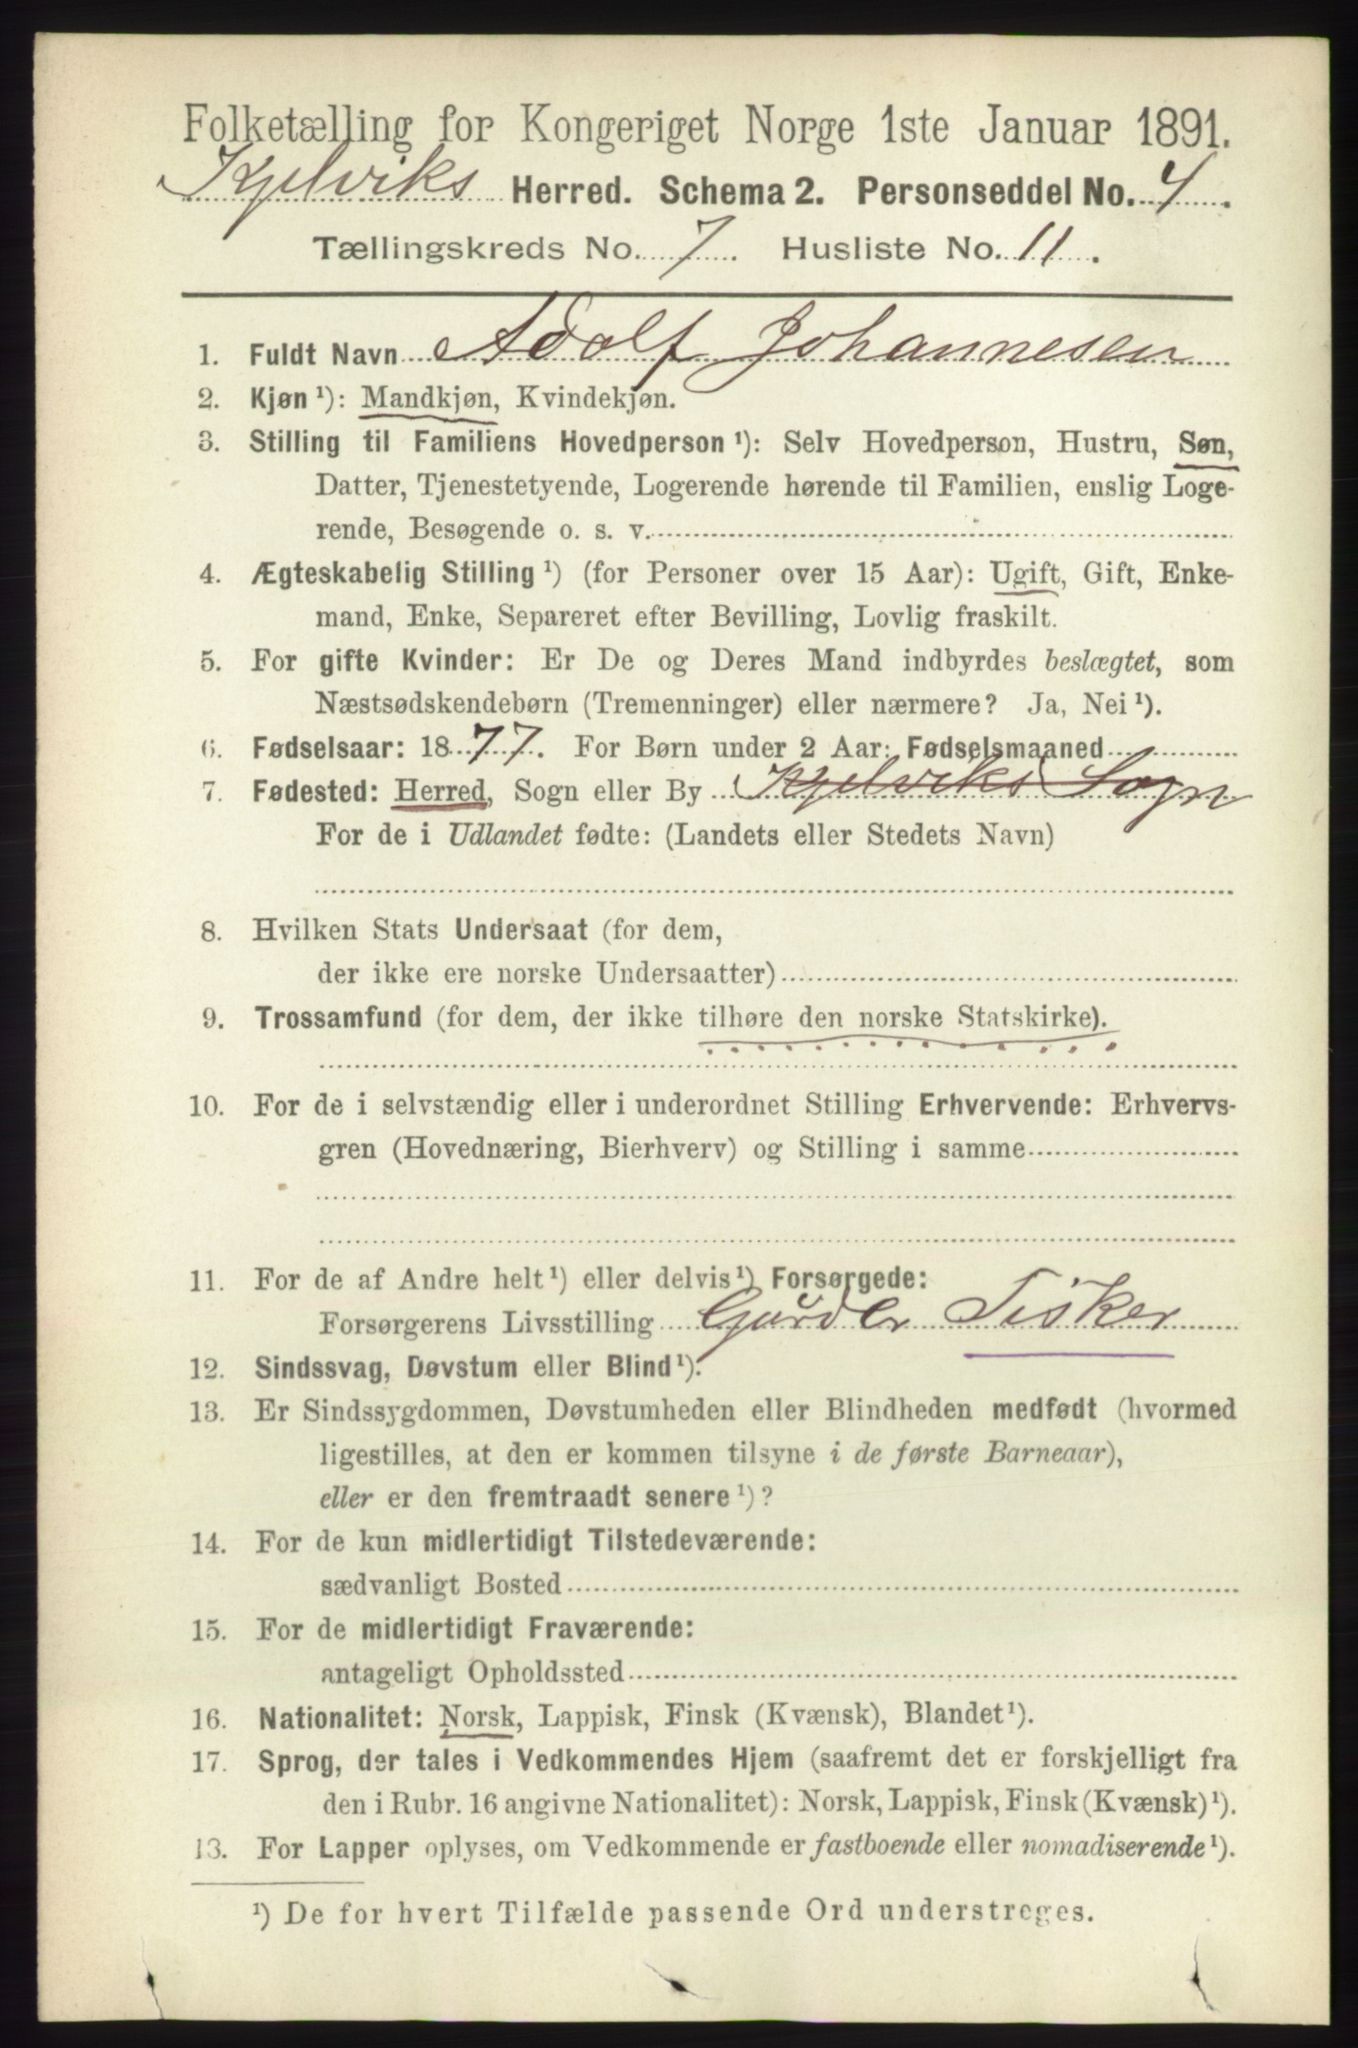 Folketælling for Kongeriget Norge 1ste Januar 1891.
Kjelviks Herred. Schema 2. Personseddel No. 4.
Tællingskreds No. 7. Husliste No. 11.
1. Fuldt Navn Adolf Johannesen
2. Kjøn ¹): Mandkjøn, Kvindekjøn.
3. Stilling til Familiens Hovedperson ¹): Selv Hovedperson, Hustru, Søn,
Datter, Tjenestetyende, Logerende hørende til Familien, enslig Loge-
rende, Besøgende o. s. v.
4. Ægteskabelig Stilling ¹) (for Personer over 15 Aar): Ugift, Gift, Enke-
mand, Enke, Separeret efter Bevilling, Lovlig fraskilt.
5. For gifte Kvinder: Er De og Deres Mand indbyrdes beslægtet, som
Næstsødskendebørn (Tremenninger) eller nærmere? Ja, Nei ¹).
6. Fødselsaar: 1877. For Børn under 2 Aar: Fødselsmaaned
7. Fødested: Herred, Sogn eller By Kjelviks Sogn
For de i Udlandet fødte: (Landets eller Stedets Navn)
8. Hvilken Stats Undersaat (for dem,
der ikke ere norske Undersaatter)
9. Trossamfund (for dem, der ikke tilhøre den norske Statskirke).
10. For de i selvstændig eller i underordnet Stilling Erhvervende: Erhvervs-
gren (Hovednæring, Bierhverv) og Stilling i samme
11. For de af Andre helt ¹) eller delvis ¹) Forsørgede:
Forsørgerens Livsstilling Gårdbr Fisker
12. Sindssvag, Døvstum eller Blind ¹).
13. Er Sindssygdommen, Døvstumheden eller Blindheden medfødt (hvormed
ligestilles, at den er kommen tilsyne i de første Barneaar),
eller er den fremtraadt senere ¹)?
14. For de kun midlertidigt Tilstedeværende:
sædvanligt Bosted
15. For de midlertidigt Fraværende:
antageligt Opholdssted
16. Nationalitet: Norsk, Lappisk, Finsk (Kvænsk), Blandet ¹).
17. Sprog, der tales i Vedkommendes Hjem (saafremt det er forskjelligt fra
den i Rubr. 16 angivne Nationalitet): Norsk, Lappisk, Finsk (Kvænsk) ¹).
13. For Lapper oplyses, om Vedkommende er fastboende eller nomadiserende ¹).
¹) De for hvert Tilfælde passende Ord understreges.